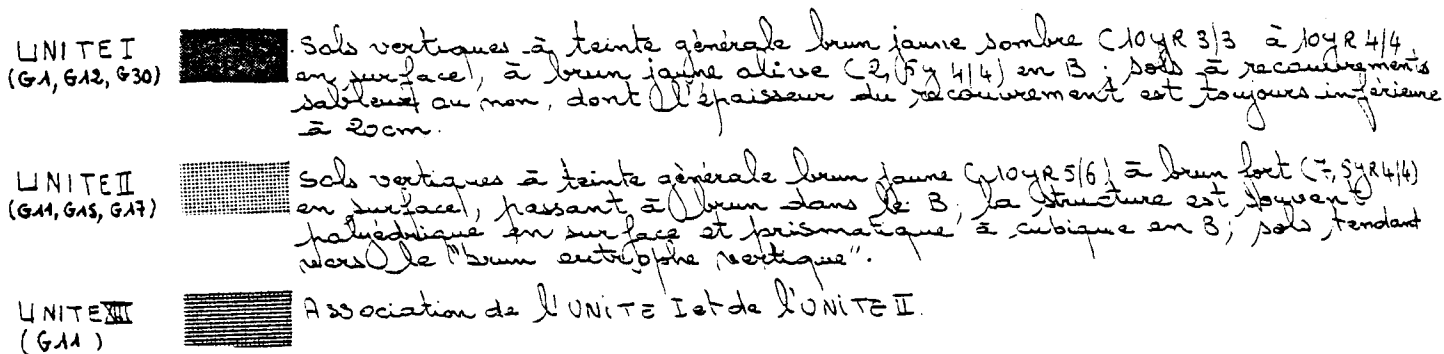 UNITE I
(G1, G12, G30)
Sols vertiques à teinte générale brun jaune sombre (10YR 3/3 à 10YR 4/4
en surface), à brun jaune olive (2,5Y 4/4) en B ; sols à recouvrements
sableux ou non, dont l'épaisseur du recouvrement est toujours inférieure
à 20cm.
UNITE II
(G11, G15, G17)
Sols vertiques à teinte générale brun jaune (10YR 5/6) à brun fort (7,5YR 4/4)
en surface, passant à brun dans le B, la structure est souvent
polyédrique en surface et prismatique à cubique en B; sols tendant
vers le "brun eutrophe vertique".
UNITE
(G11)
Association de l'UNITE I et de l'UNITE II.